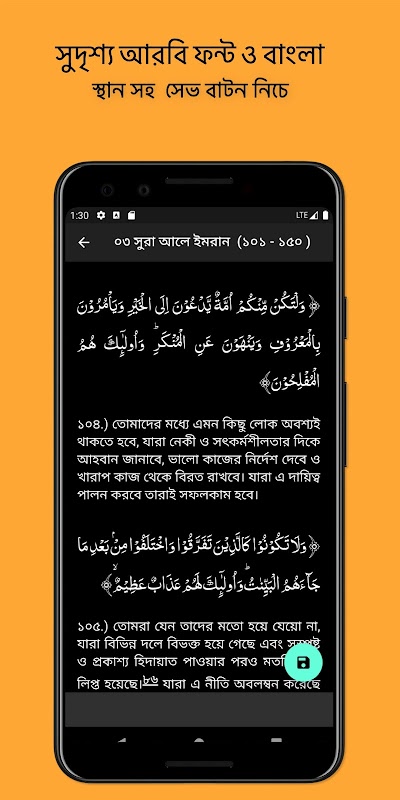 সুদৃশ্য আরবি ফন্ট ও বাংলা
স্থান সহ সেভ বাটন নিচে
1:30
LTE
০৩ সুরা আলে ইমরান (১০১ - ১৫০ )
﴿ وَلۡتَكُنۡ مِّنۡكُمۡ اُمَّةٌ يَّدۡعُوۡنَ اِلَى الۡخَيۡرِ وَيَاۡمُرُوۡنَ
بِالۡمَعۡرُوۡفِ وَيَنۡهَوۡنَ عَنِ الۡمُنۡكَرِ‌ؕ وَاُولٰٓٮِٕكَ هُمُ
الۡمُفۡلِحُوۡنَ﴾
১০৪.) তোমাদের মধ্যে এমন কিছু লোক অবশ্যই
থাকতে হবে, যারা নেকী ও সৎকর্মশীলতার দিকে
আহবান জানাবে, ভালো কাজের নির্দেশ দেবে ও
খারাপ কাজ থেকে বিরত রাখবে। যারা এ দায়িত্ব
পালন করবে তারাই সফলকাম হবে।
﴿ وَلَا تَكُوۡنُوۡا كَالَّذِيۡنَ تَفَرَّقُوۡا وَاخۡتَلَفُوۡا مِنۡۢ بَعۡدِ مَا
جَآءَهُمُ الۡبَيِّنٰتُ‌ؕ وَاُولٰٓٮِٕكَ لَهُمۡ عَذَابٌ عَظِيۡمٌۙ‏﴾
১০৫.) তোমরা যেন তাদের মতো হয়ে যেয়ো না,
যারা বিভিন্ন দলে বিভক্ত হয়ে গেছে এবং সুস্পষ্ট
ও প্রকাশ্য হিদায়াত পাওয়ার পরও
লিপ্ত হয়েছে।৮৬ যারা এ নীতি অবলম্বন করেছে